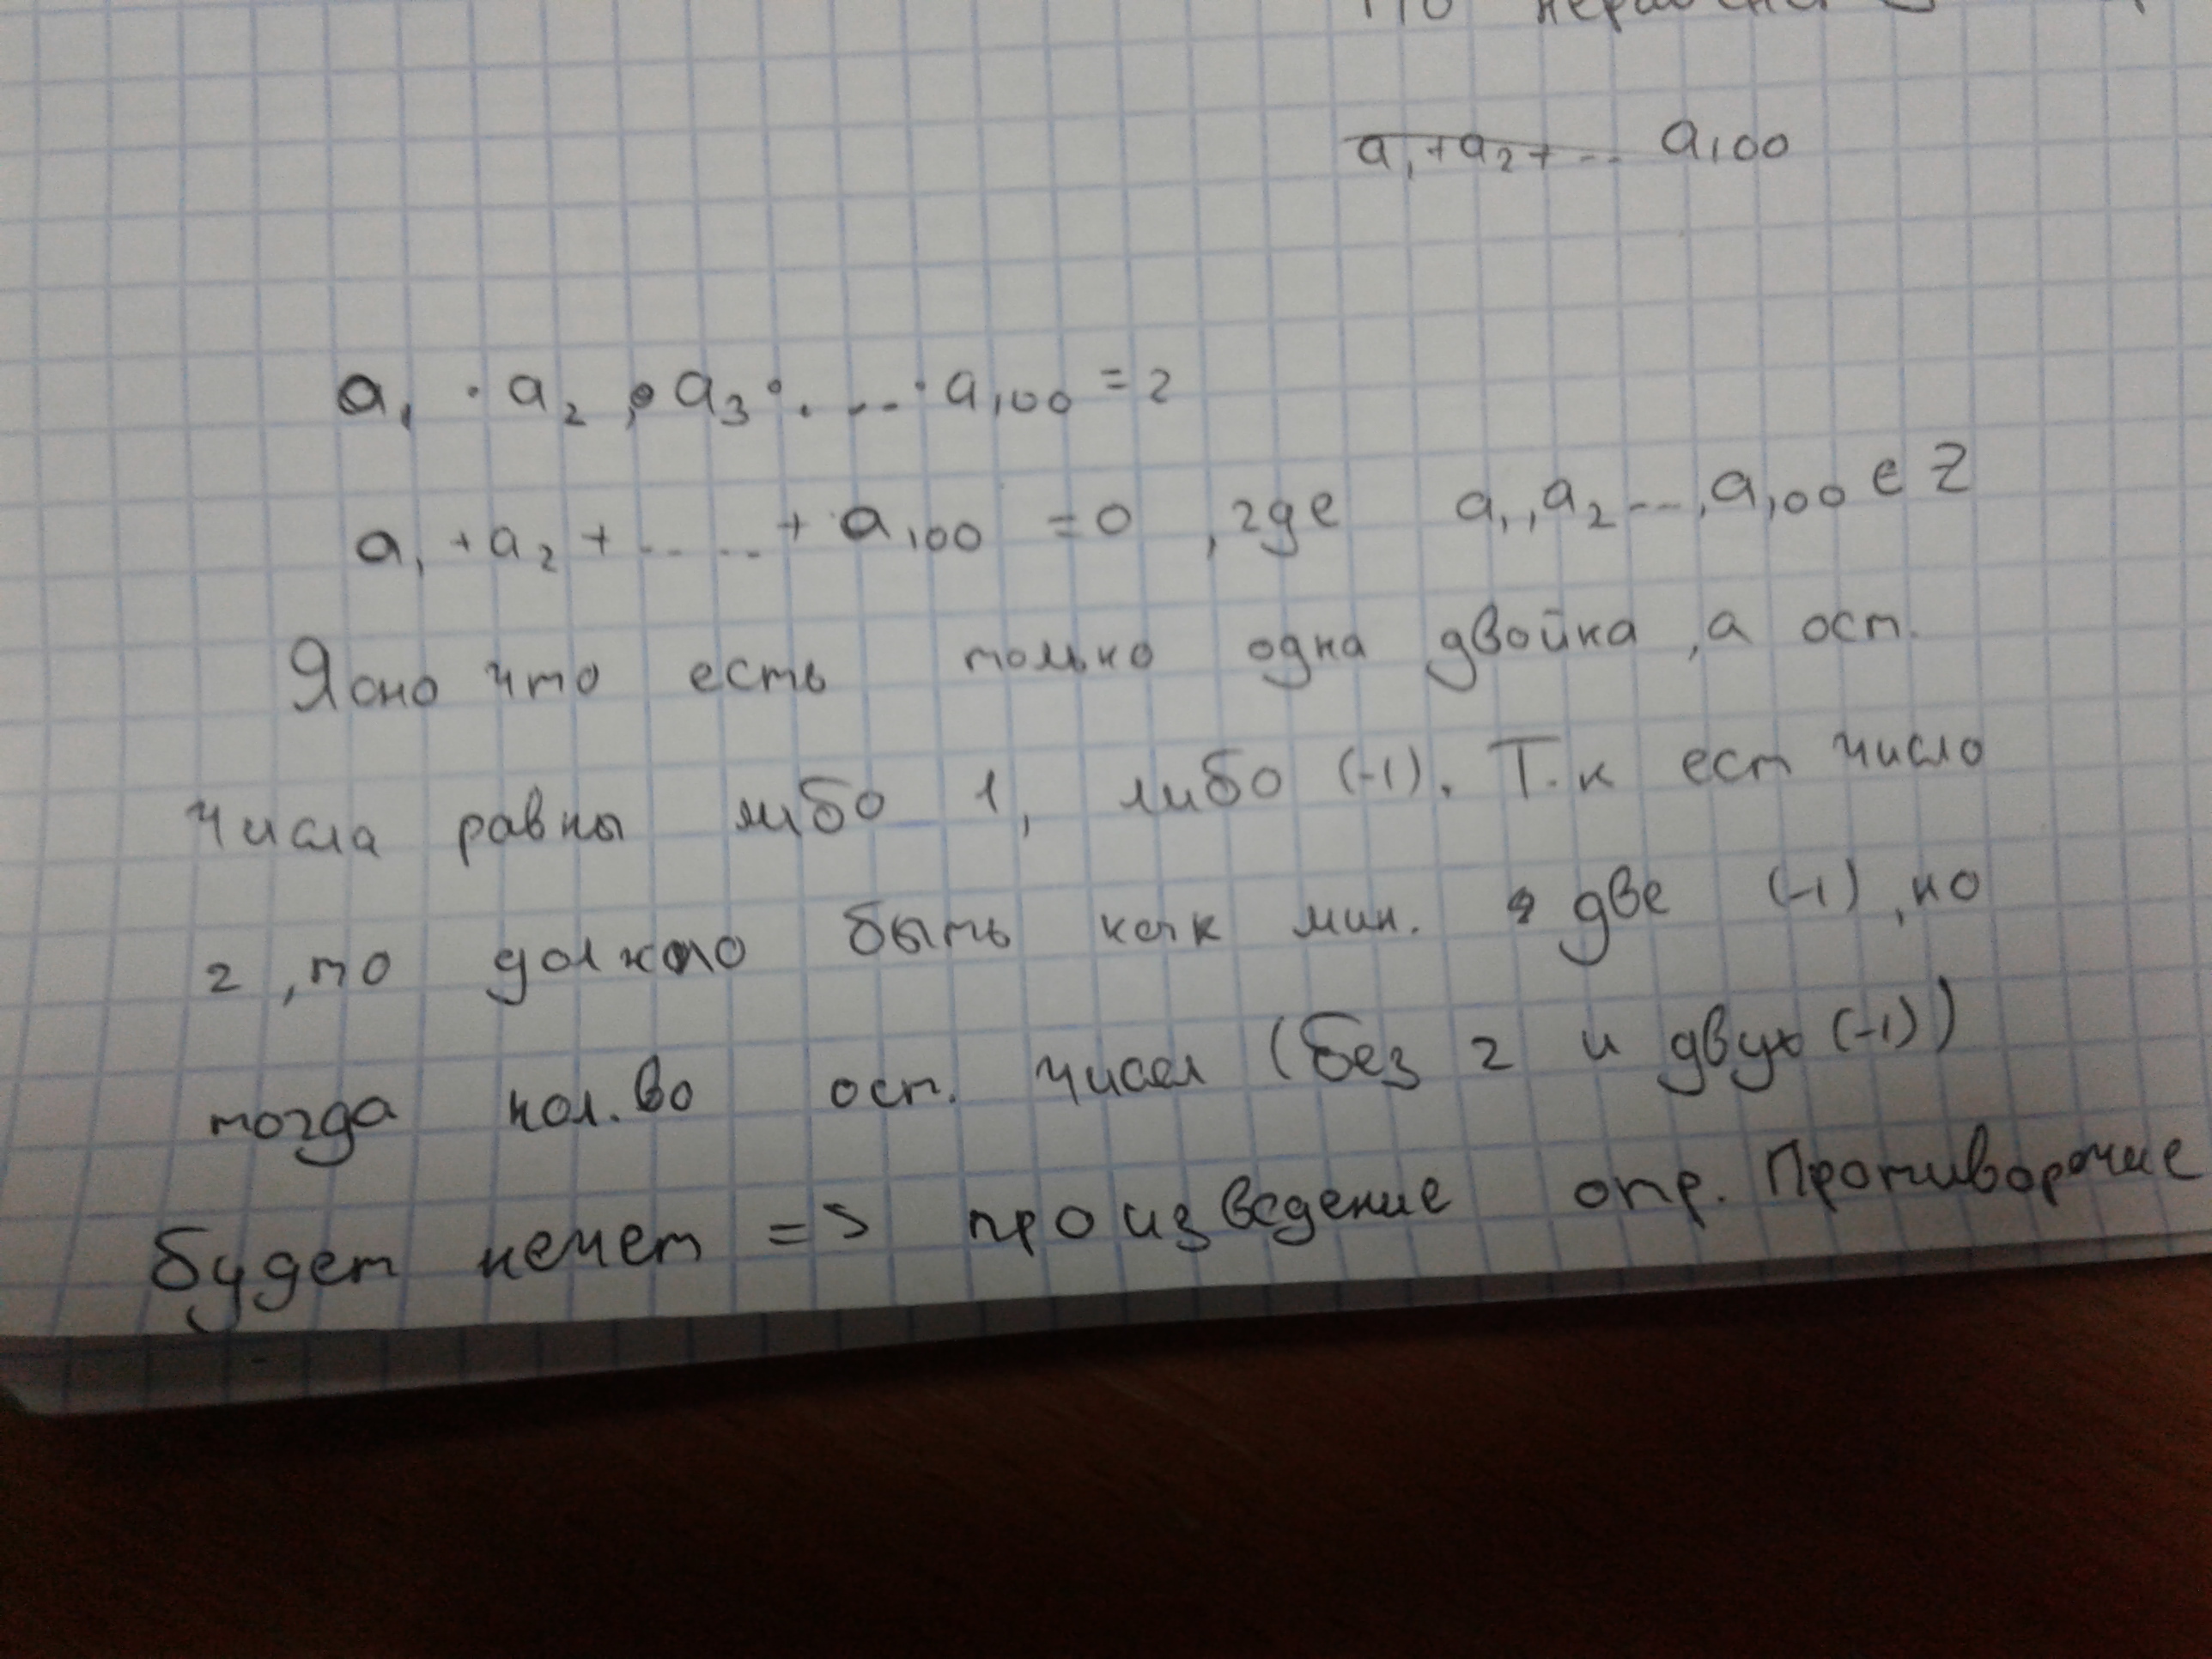 a₁+a₂+... a₁₀₀
a₁ · a₂ · a₃ · ... · a₁₀₀ = 2
a₁ + a₂ + ..... + a₁₀₀ = 0 , где a₁, a₂ ..., a₁₀₀ ∈ Z
Ясно что есть только одна двойка , а ост.
числа равны либо 1, либо (-1). Т.к ест число
2 , то должно быть как мин. две (-1) , но
тогда кол.во ост. чисел (без 2 и двух (-1))
будет нечет => произведение отр. Противоречие